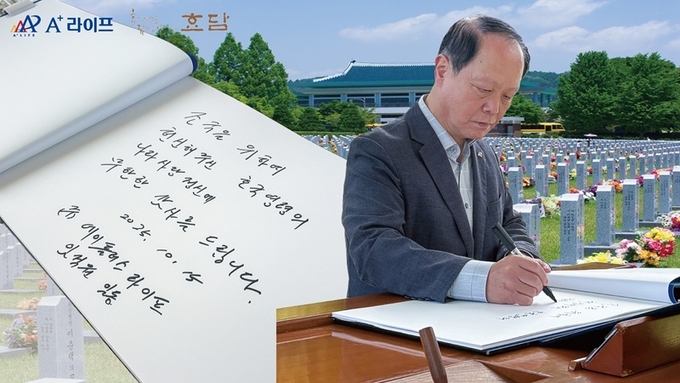 A⁺ 라이프
효담
조국을 위하여
헌신하신 호국영령의
나라사랑정신에
무한한 감사를 드립니다.
10. 15
㈜ 에이플러스 라이프
임직원 일동